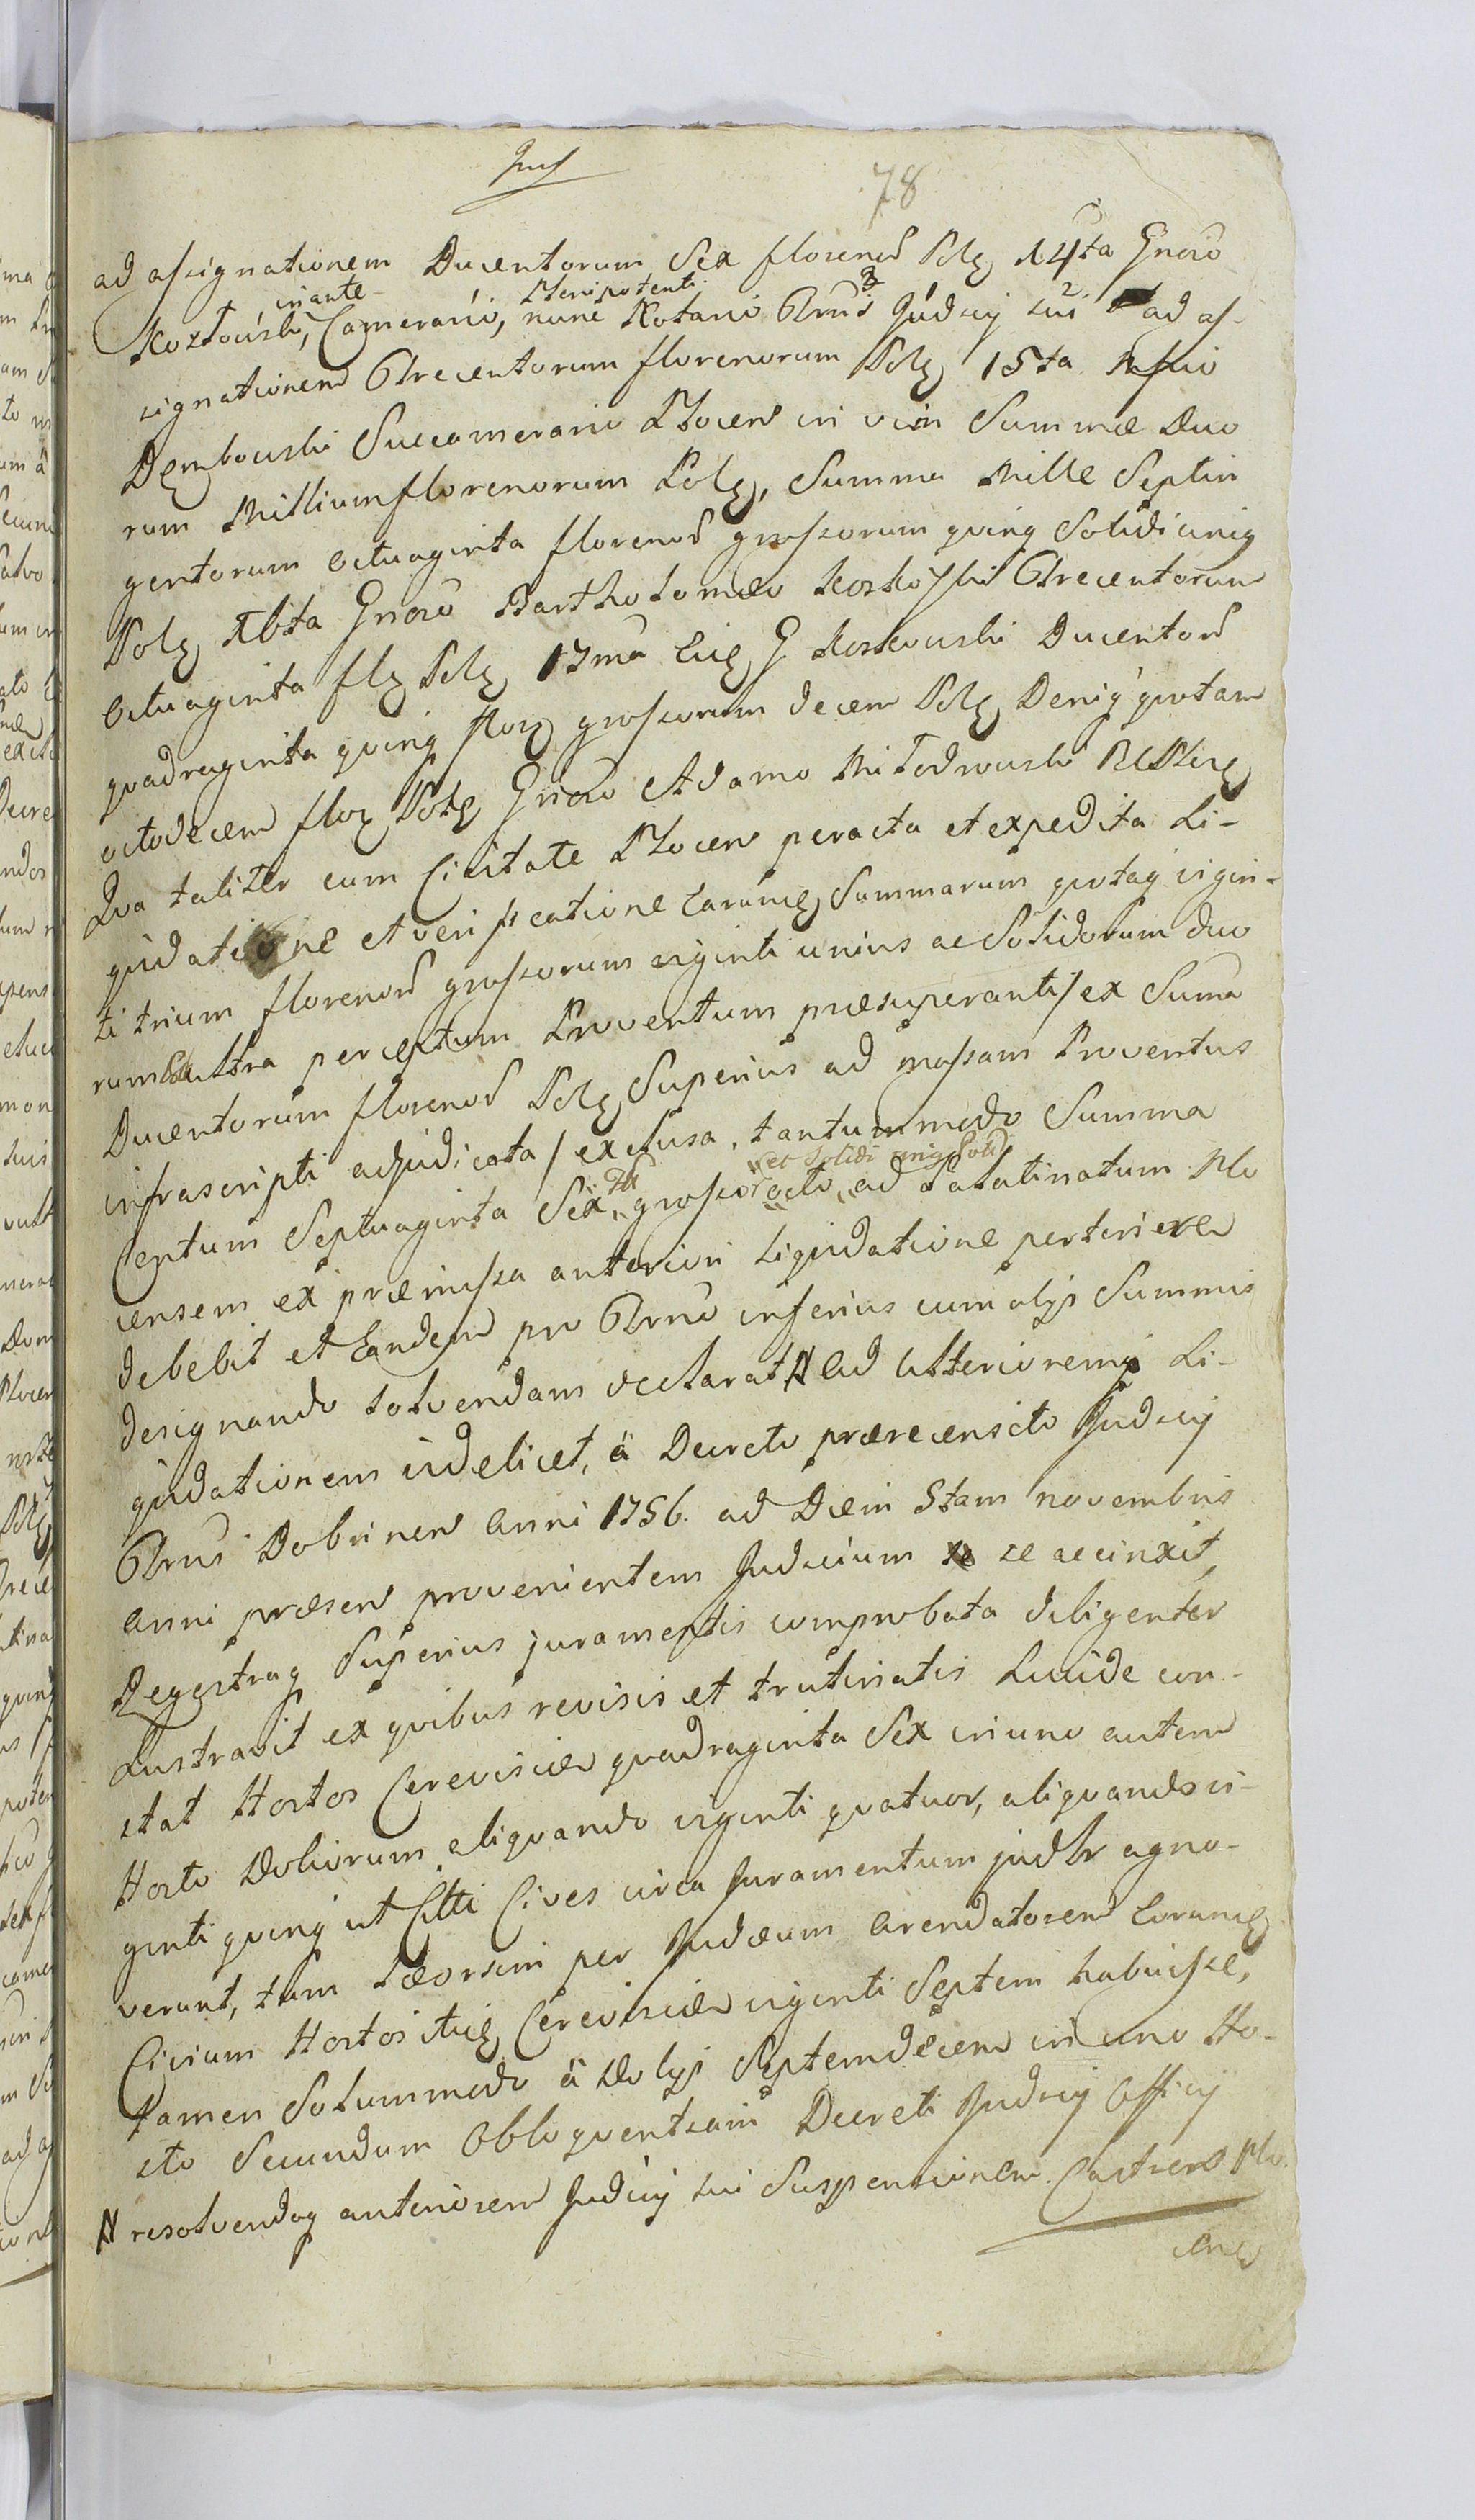 78
ad assignationem Ducentorum Sex florenor Polg 14ta Gnoso
in ante Plenipotenti
Kozłowski, Camerario, nunc Notario Thrus Judicij sui ad as-
signationem Threcentorum florenorum Polg 15ta Msso
Dembowski Succamerario Plocen in vim Summæ Duo
rum Millium florenorum Polg, Summa Mille Septin
gentorum octuaginta florenor grossorum quinq Solidi uniq
Polg 16ta Gnoso Bartholomæo Threcentorum
Octuaginta flg Polg 17ma Eiq G Ducentor
quadraginta quinq flor grossorum decem Polg Deniq quotam
octodecem flor Polg Gnoso Adamo
Qua taliter cum Civitate Plocen peracta et expedita Li-
quidatione et verificatione earumq Summarum quotaq vigin-
ti trium florenor grossorum viginti unius ac Solidorum duo
rum ultra perceptum Proventum præsuperanti/ ex Suma
Ducentorum florenor Polg Superius ad massam Proventus
infrascripti adjudicata / exclusa, tantummodo Summa
et Solidi
Centum Septuaginta Sex grossor octo ad Palatinatum Plo
censem ex præmissa anteriori Liquidatione pertinere
debebit et Eandem pro Thrno inferius cum alijs Summis
designando solvendam declarat # Ad Ulteriorem Li-
quidationem videlicet, à Decreto prærecensito Judicij
Thrus Dobrinen Anni 1756. ad Diem 5tam novembris
anni præsen provenientem Judicium se accinxit,
Regestraq Superius juramentis comprobata diligenter
Lustravit ex quibus revisis et trutinatis Lucide con-
stat Hostos Cerevisiæ quadraginta Sex in uno autem
Hosto Doliorum aliquando viginti quatuor, aliquando vi-
ginti quinq ut Citti Cives circa Juramentum judlr agno-
verunt, tum Seorsim per Judæum Arendatorem Eorumq
Civium Hostos Cerevisiæ viginti Septem habuisse,
tamen Solummodo à Dolijs Septemdecem in uno Ho-
sto Secundum Obloquentiam Decreti Judicij Officij
# resolvendoq anteriorem Judicij sui Suspensionem. Castren Plo
cens